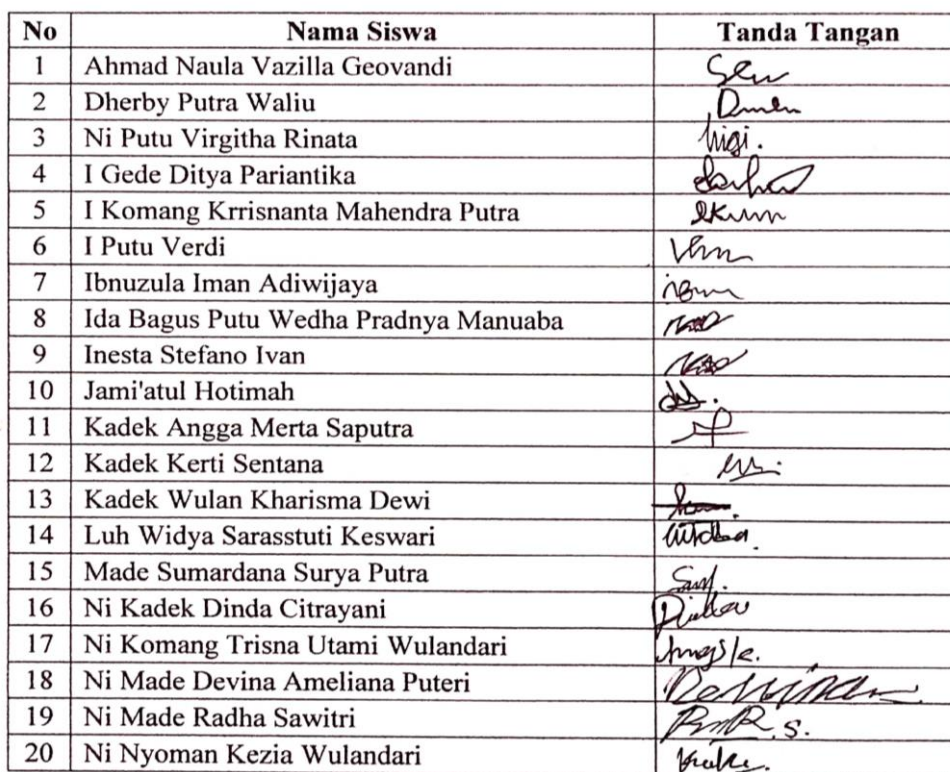 No Nama Siswa Tanda Tangan
1 Ahmad Naula Vazilla Geovandi
2 Dherby Putra Waliu
3 Ni Putu Virgitha Rinata
4 I Gede Ditya Pariantika
5 I Komang Krrisnanta Mahendra Putra
6 I Putu Verdi
7 Ibnuzula Iman Adiwijaya
8 Ida Bagus Putu Wedha Pradnya Manuaba
9 Inesta Stefano Ivan
10 Jami'atul Hotimah
11 Kadek Angga Merta Saputra
12 Kadek Kerti Sentana
13 Kadek Wulan Kharisma Dewi
14 Luh Widya Sarasstuti Keswari
15 Made Sumardana Surya Putra
16 Ni Kadek Dinda Citrayani
17 Ni Komang Trisna Utami Wulandari
18 Ni Made Devina Ameliana Puteri
19 Ni Made Radha Sawitri
20 Ni Nyoman Kezia Wulandari